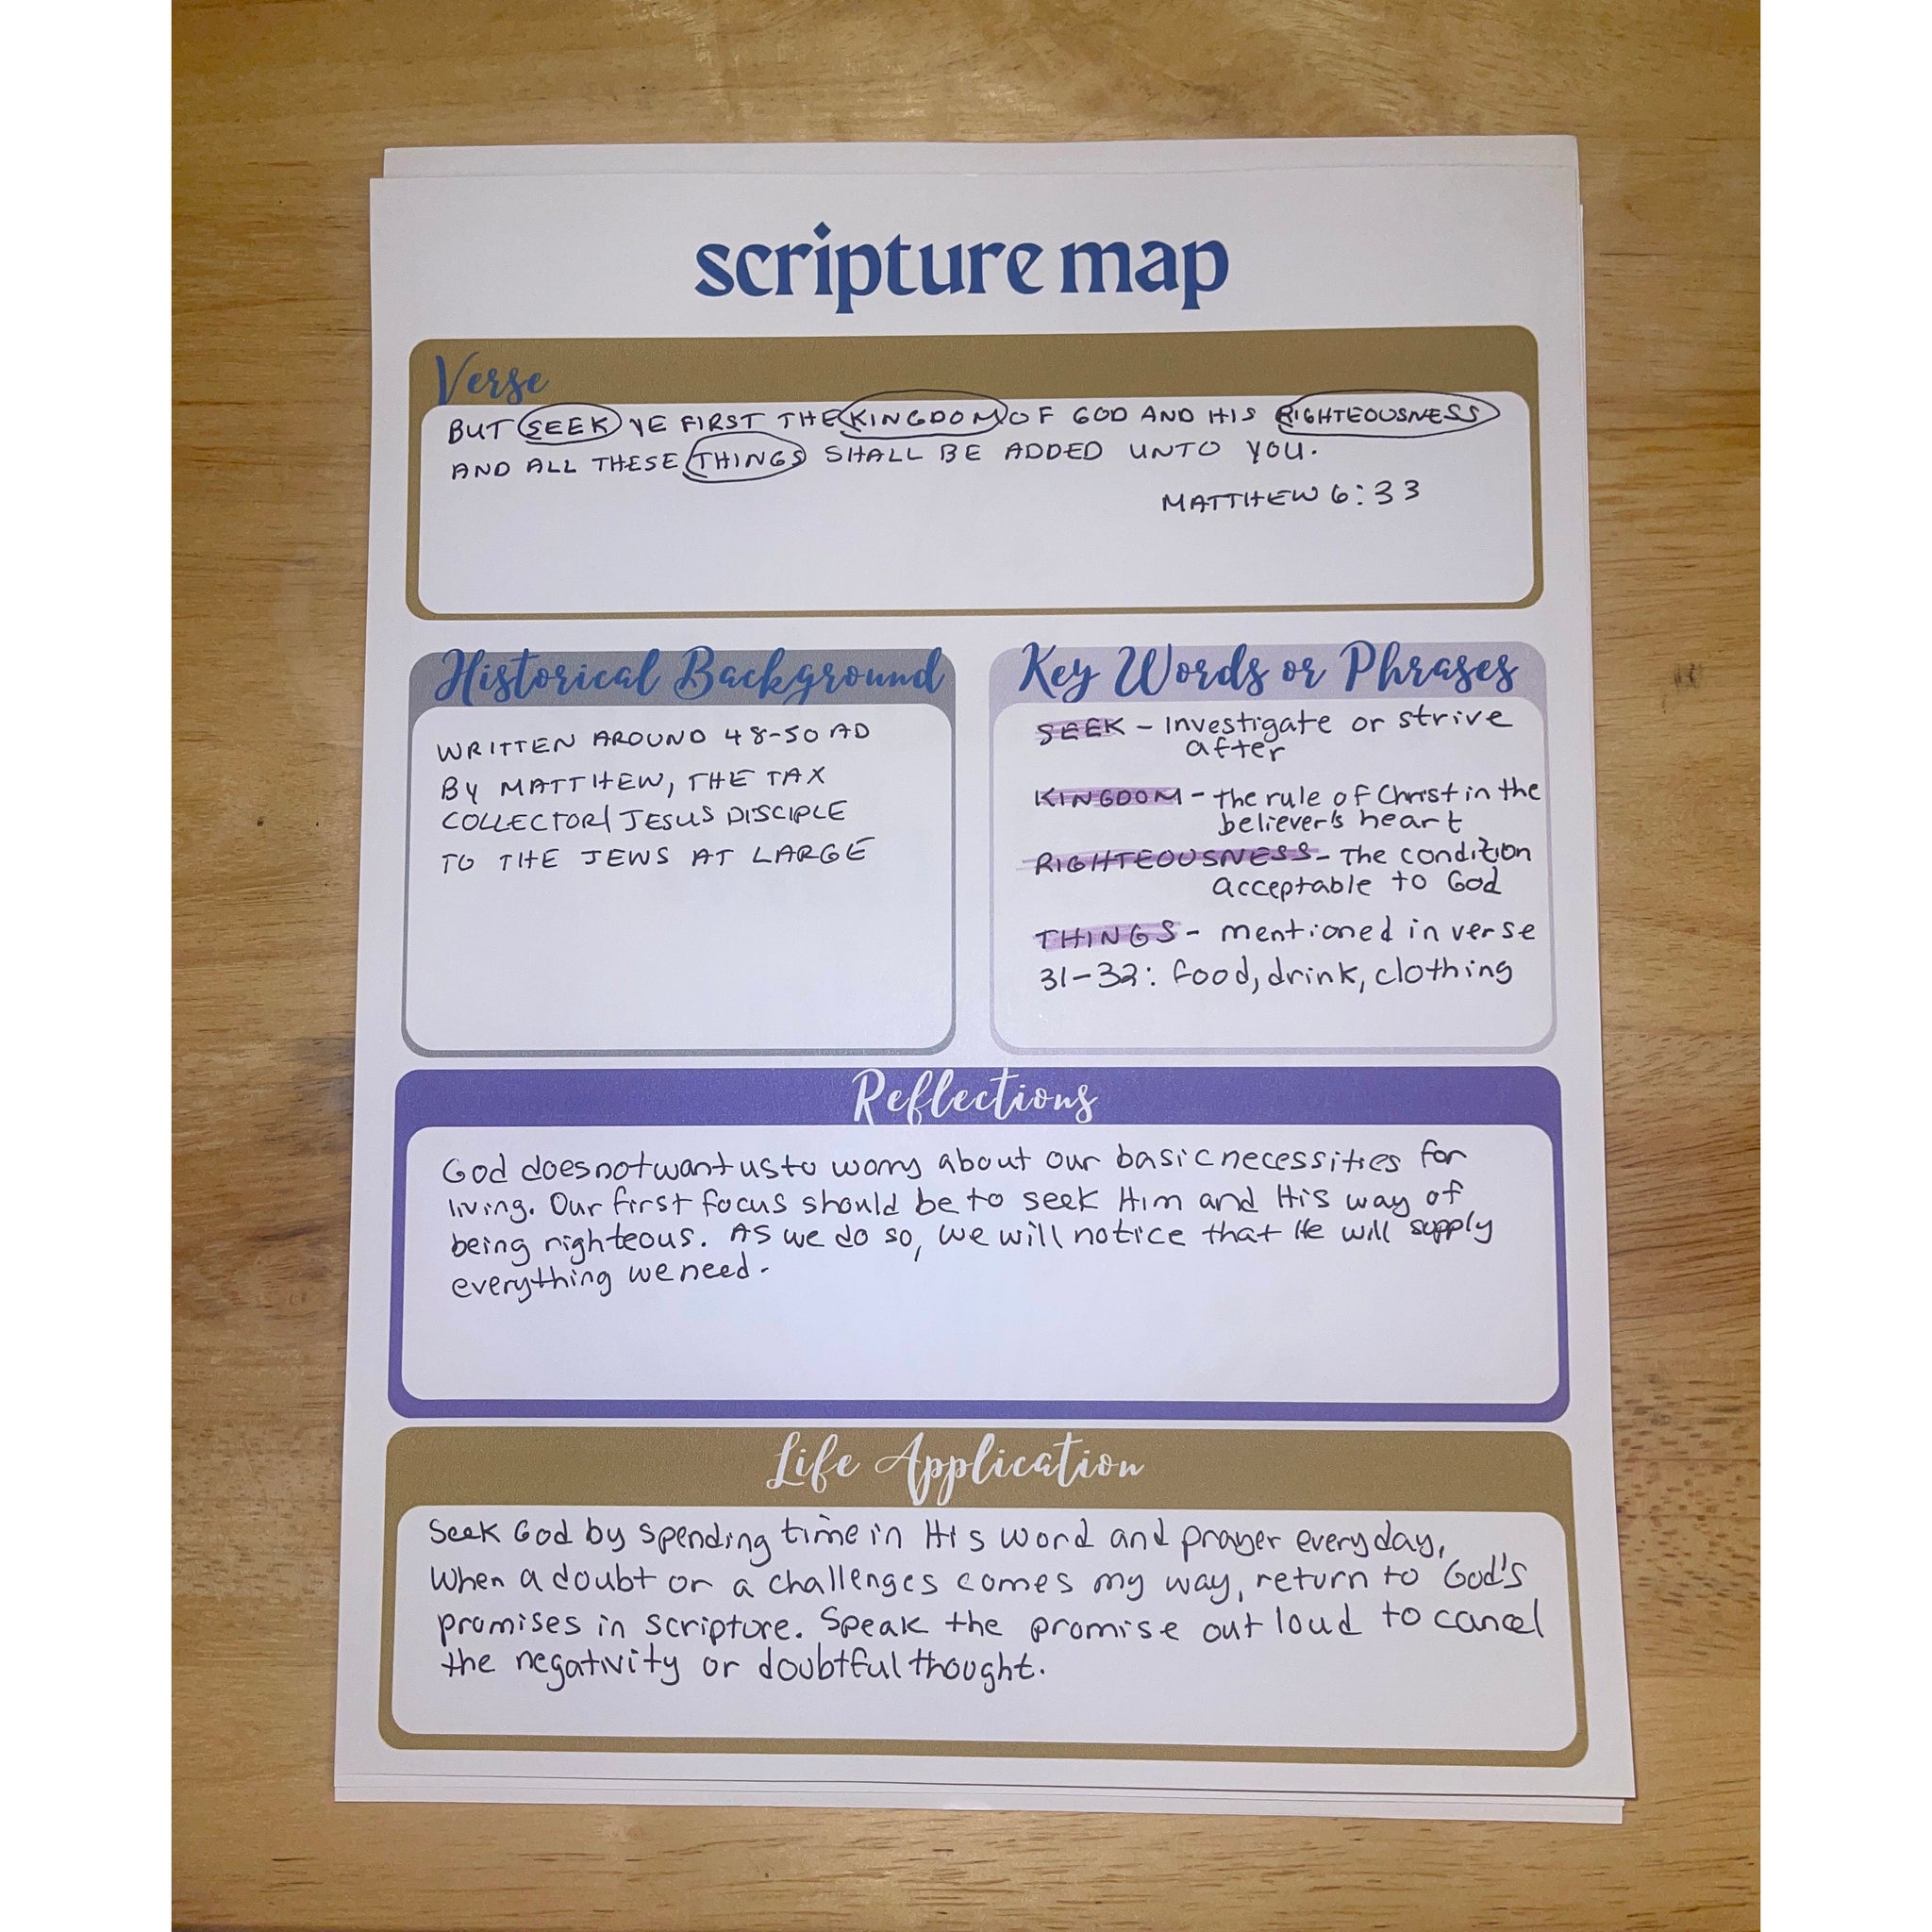 scripture map
Verse
BUT SEEK YE FIRST THE KINGDOM OF GOD AND HIS RIGHTEOUSNESS
AND ALL THESE THINGS SHALL BE ADDED UNTO YOU.
MATTHEW 6:33
Historical Background
WRITTEN AROUND 48-50 AD
BY MATTHEW, THE TAX
COLLECTOR/JESUS DISCIPLE
TO THE JEWS AT LARGE
Key Words or Phrases
SEEK - Investigate or strive
after
KINGDOM - the rule of Christ in the
believer's heart
RIGHTEOUSNESS - The condition
acceptable to God
THINGS - mentioned in verse
31-32: food, drink, clothing
Reflections
God does not want us to worry about our basic necessities for
living. Our first focus should be to seek Him and His way of
being righteous. As we do so, we will notice that He will supply
everything we need.
Life Application
Seek God by spending time in His word and prayer everyday,
When a doubt or a challenges comes my way, return to God's
promises in scripture. Speak the promise out loud to cancel
the negativity or doubtful thought.